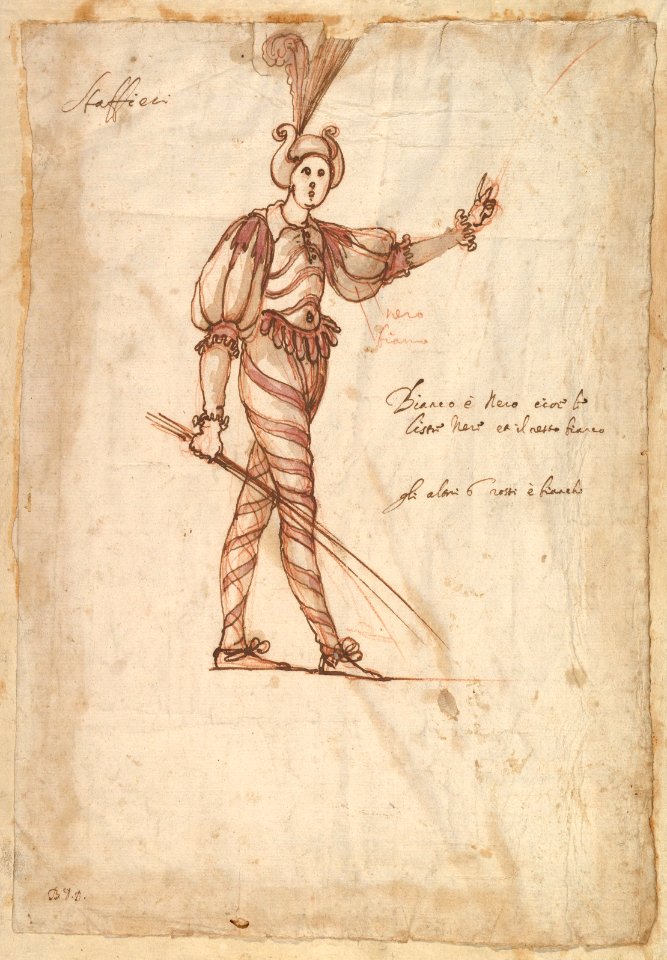 Staffieri
nero
bianco
Bianco è Nero cioè le
liste Nere et il resto bianco
gli altri 6 rossi è bianchi
B.I.B.